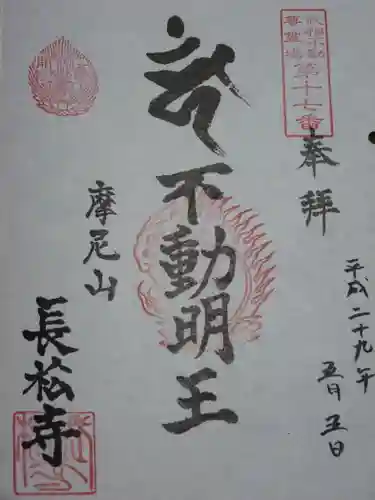 第十七番
奉拝
平成二十九年
五月五日
不動明王
摩尼山
長松寺